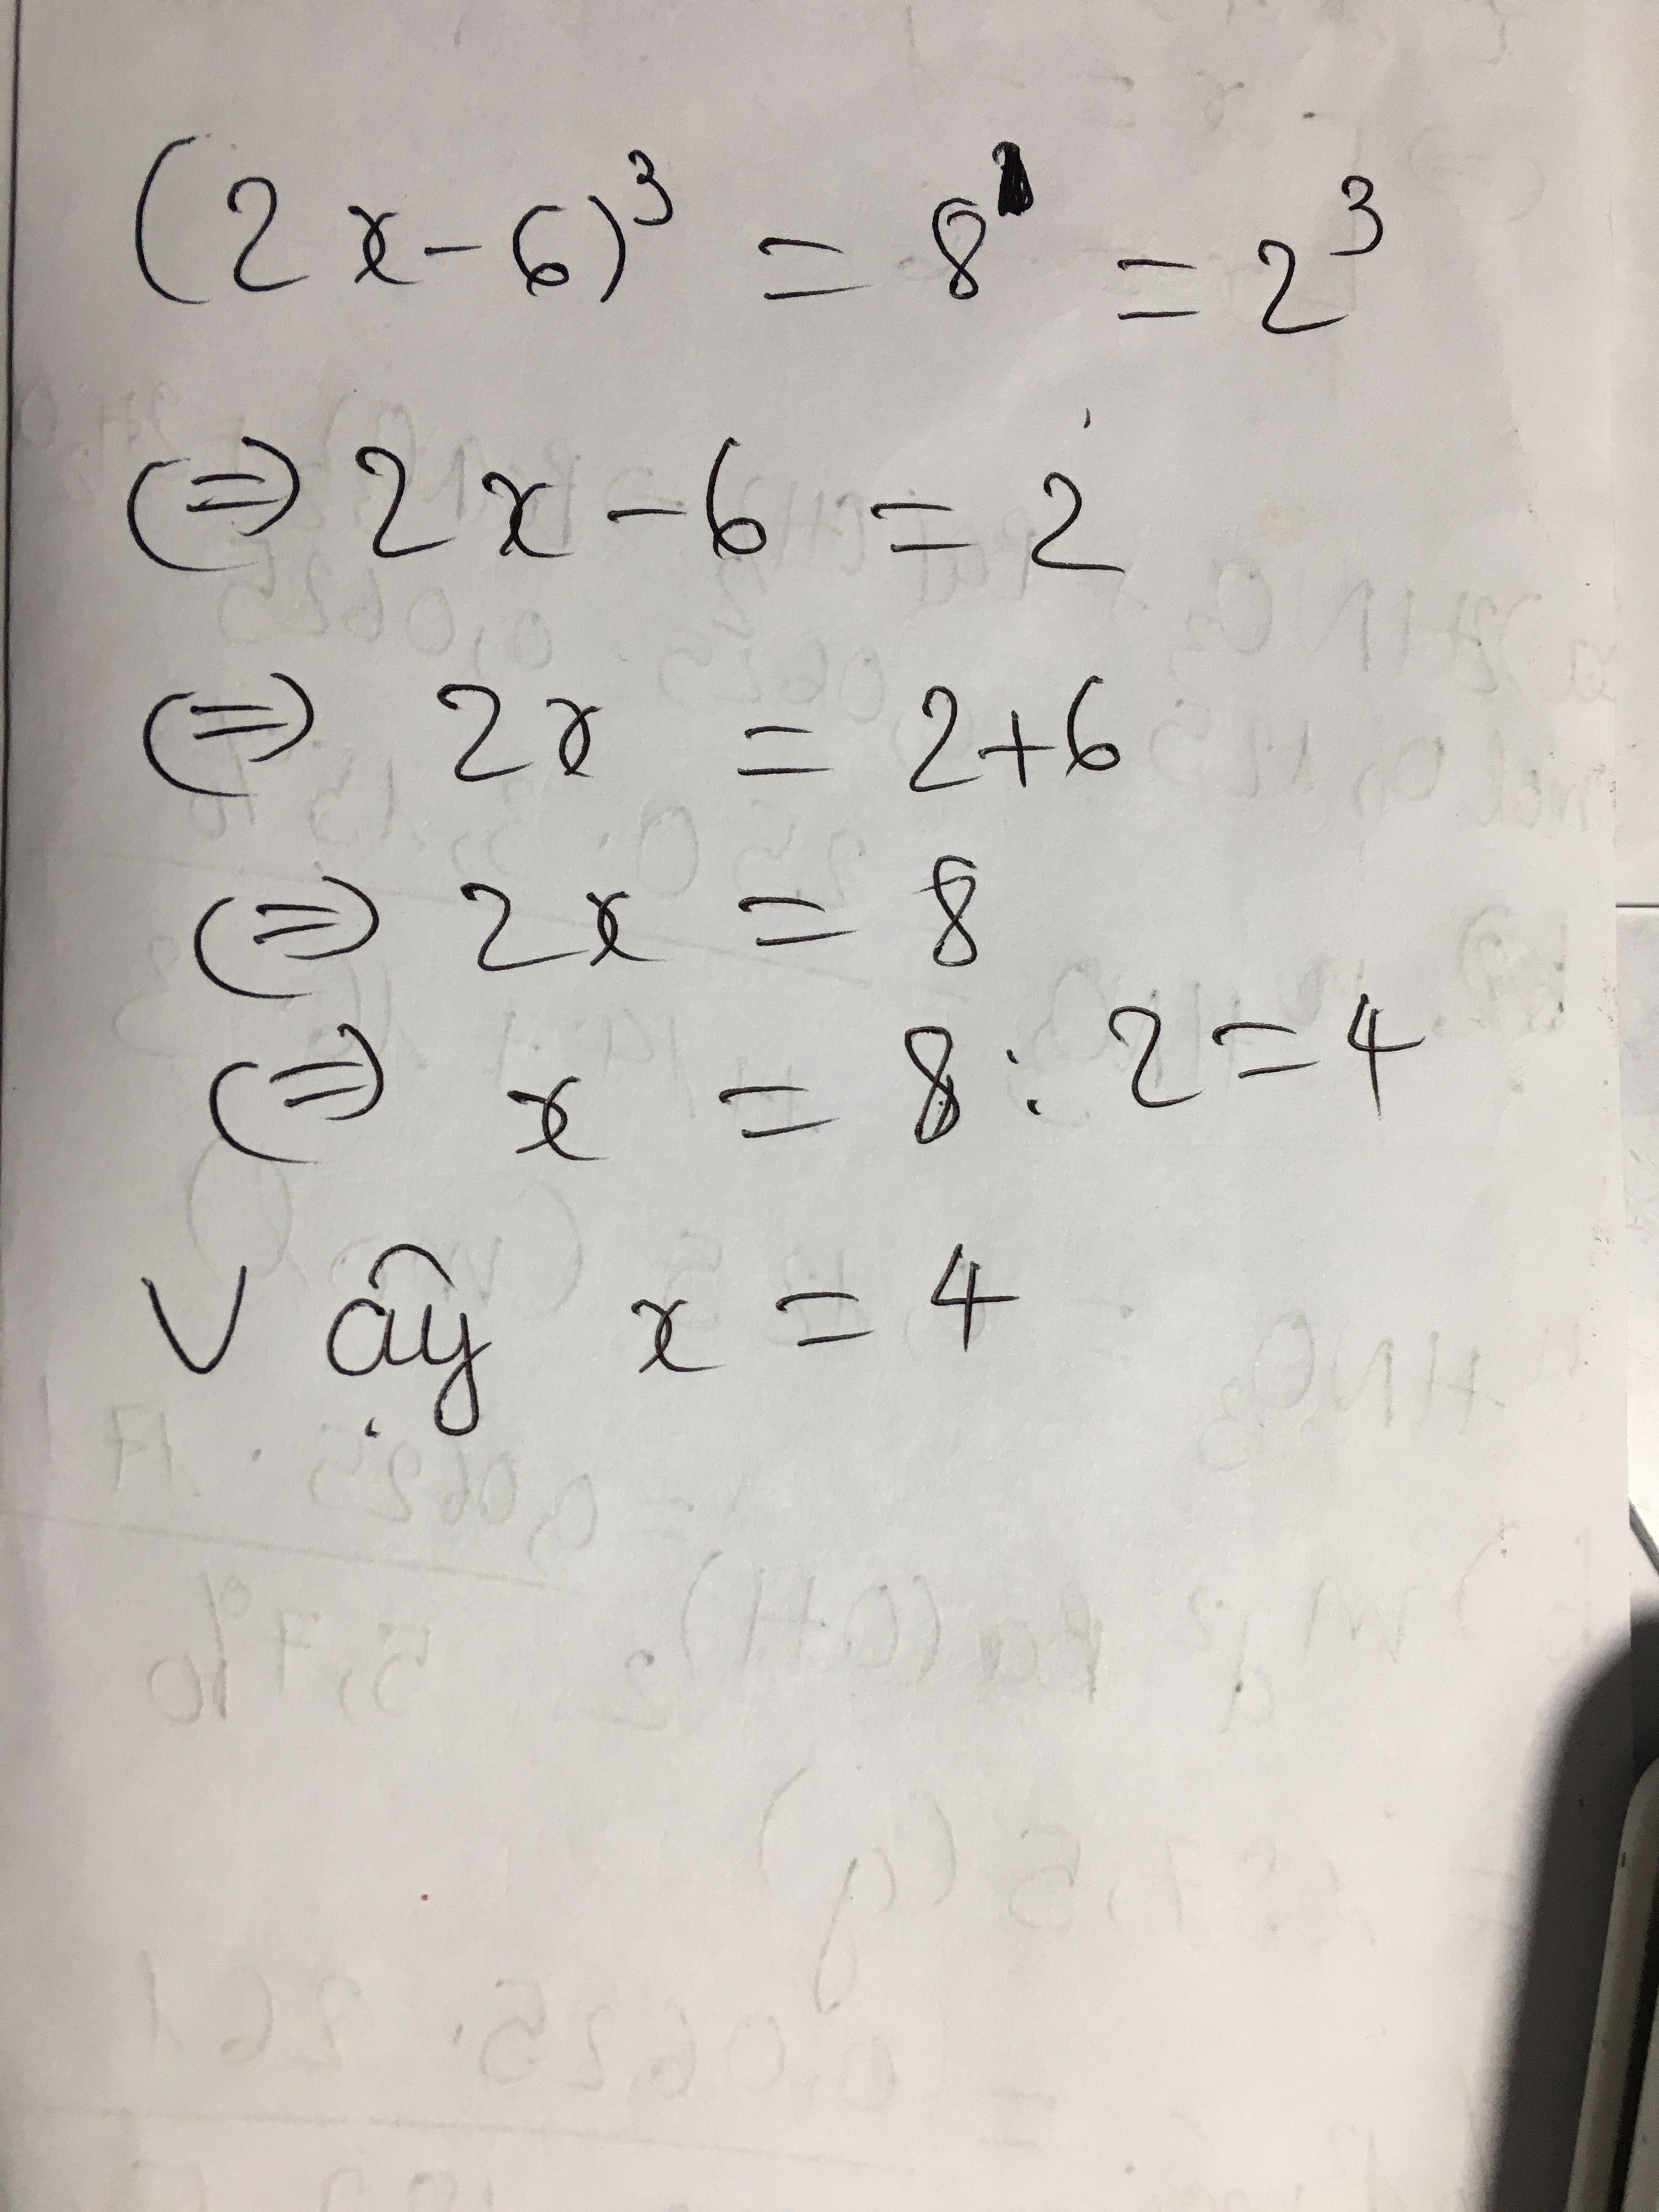 (2x-6)³ = 8 = 2³
(=) 2x - 6 = 2
(=) 2x = 2+6
(=) 2x = 8
(=) x = 8 : 2 = 4
Vậy x = 4